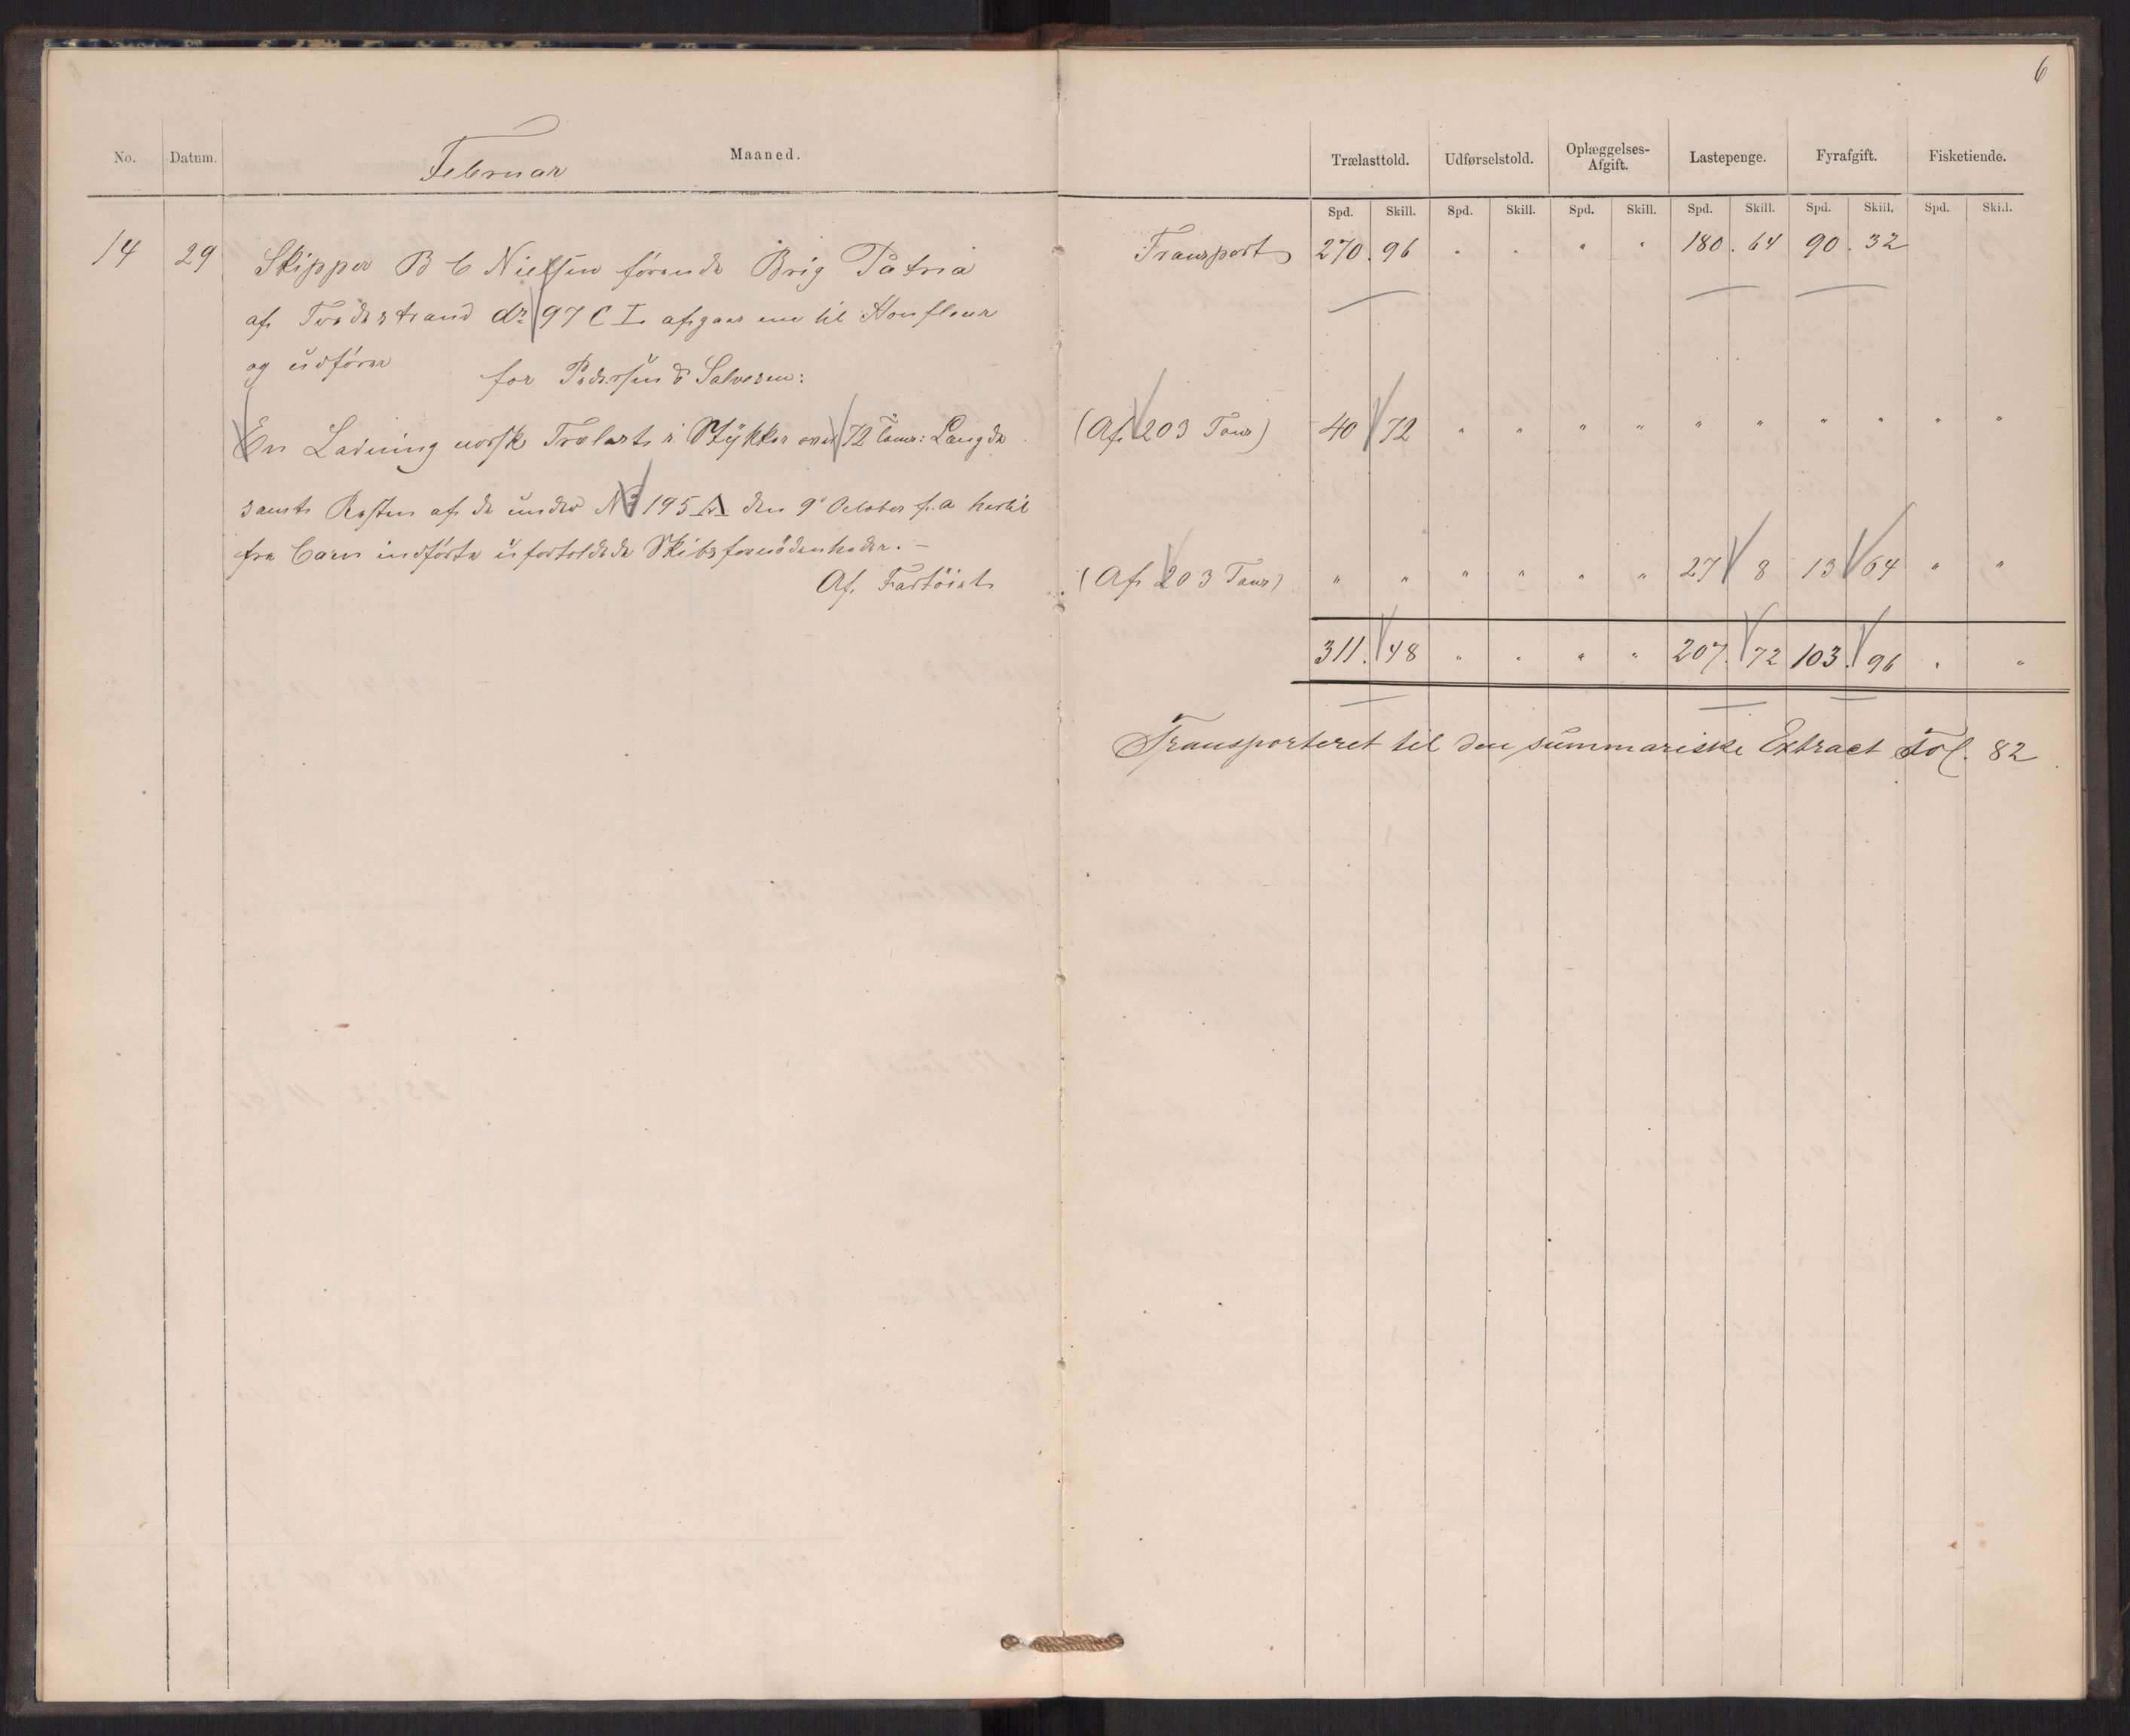 6
No. Datum. Februar Maaned. Trælasttold. Udførselstold. Oplæggelses-Afgift. Lastepenge. Fyrafgift. Fisketiende.
Spd. Skill. Spd. Skill. Spd. Skill. Spd. Skill. Spd. Skill. Spd. Skill.
Transport 270. 96 " " " " 180. 64 90. 32
14 29 Skipper B C Nielsen förende Brig Patria
af Tvedestrand dr 97 C L afgaar nu til Honfleur
og udförer for Pedersen & Salvesen:
En Ladning norsk Trælast i Stykker over 12 Tom: Længde (Af 203 Tons) 40 72 " " " " " " " " " "
samt Resten af de under No 195 A den 9 October f. a hertil
fra Caen indførte ufortoldede Skibsfornödenheder. —
Af Fartöiet (Af 203 Tons) " " " " " " 27 8 13 64 " "
311. 48 " " " " 207. 72 103. 96 " "
Transporteret til den summariske Extract Fol. 82